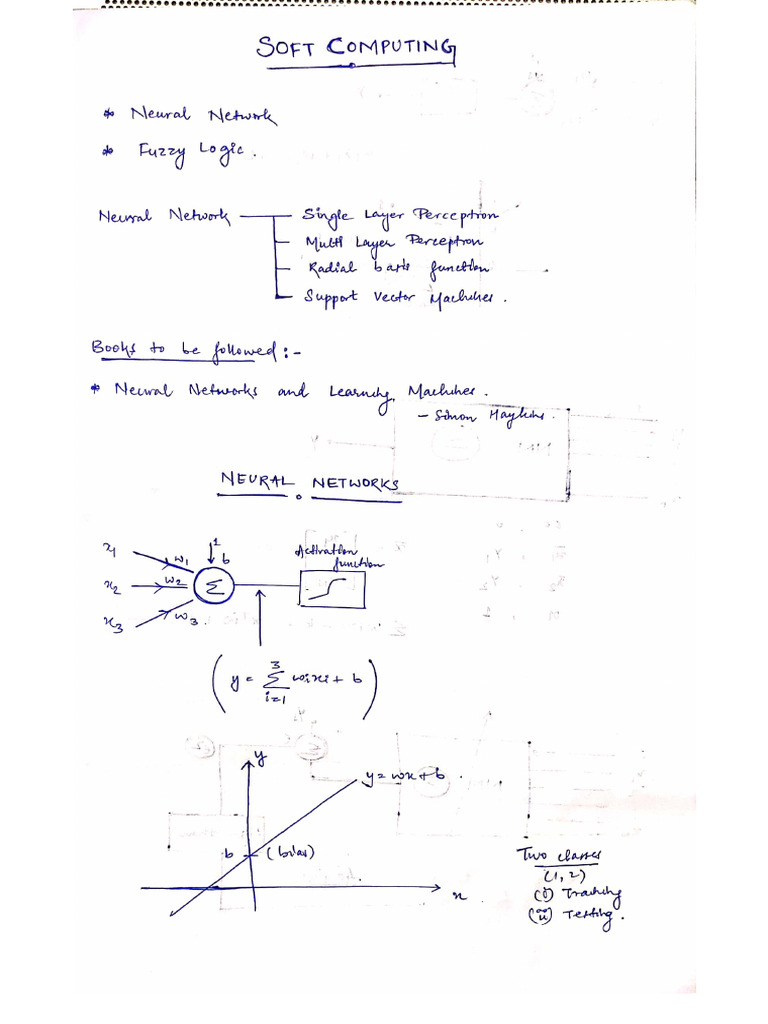 SOFT COMPUTING
* Neural Network
* Fuzzy Logic.
Neural Network
Single Layer Perceptron
Multi Layer Perceptron
Radial basis function
Support Vector Machines.
Books to be followed:-
* Neural Networks and Learning Machines.
- Simon Haykins.
NEURAL NETWORKS
x1
x2
x3
w1
w2
w3.
1
b
Σ
Activation
function
(y = Σ wixi + b)
3
i=1
y
y = wx + b.
b (bias)
x.
Two classes
(1, 2)
(i) Training
(ii) Testing.